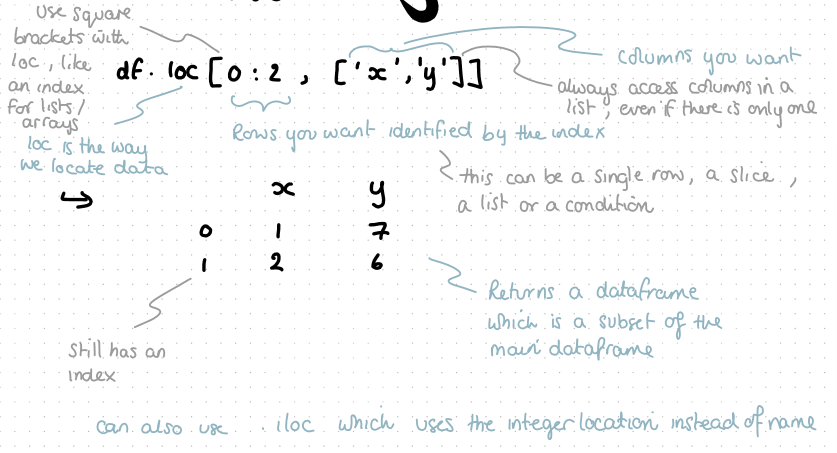 use square
brackets with
loc, like
an index
for lists/
arrays
df.loc[0:2, ['x','y']]
columns you want
always access columns in a
list, even if there is only one
Rows you want identified by the index
loc is the way
we locate data
this can be a single row, a slice,
a list or a condition
x y
0 1 7
1 2 6
Returns a dataframe
which is a subset of the
main dataframe
Still has an
index
can also use .iloc which uses the integer location instead of name